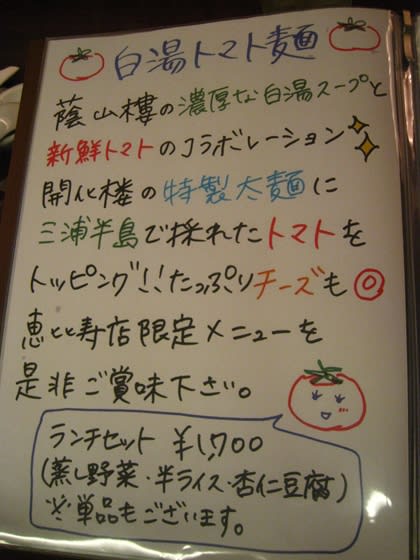 白湯トマト麺
蔭山樓の濃厚な白湯スープと
新鮮トマトのコラボレーション
開化楼の特製太麺に
三浦半島で採れたトマトを
トッピング!!たっぷりチーズも◎
恵比寿店限定メニューを
是非ご賞味下さい。
ランチセット ¥1,700
(蒸し野菜・半ライス・杏仁豆腐)
※単品もございます。